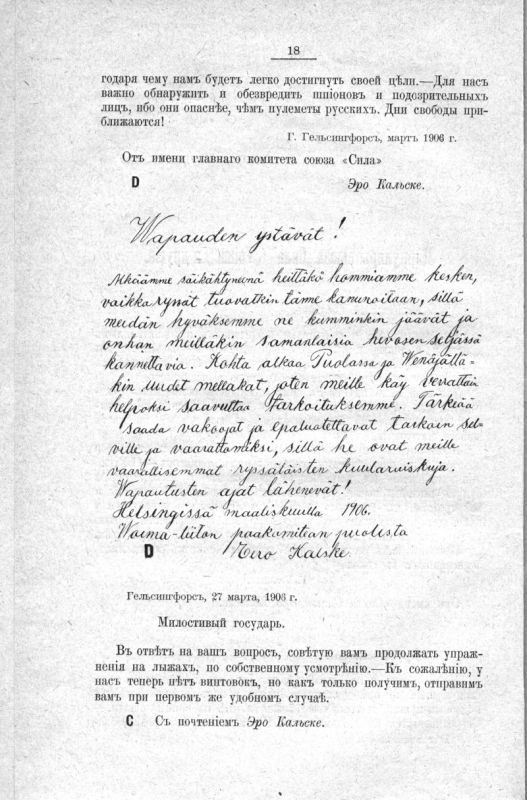 18
годаря чему намъ будетъ легко достигнуть своей цѣли.—Для насъ
важно обнаружить и обезвредить шпіоновъ и подозрительныхъ
лицъ, ибо они опаснѣе, чѣмъ пулеметы русскихъ. Дни свободы при-
ближаются!
Г. Гельсингфорсъ, мартъ 1906 г.
Отъ имени главнаго комитета союза «Сила»
D Эро Кальске.
Wapauden ystävät!
Älkäämme säikähtyneinä heittäkö hommiamme kesken,
vaikka ryssät tuovatkin tänne kanunoitaan, sillä
meidän hyväksemme ne kumminkin jäävät ja
onhan meilläkin samanlaisia hevosen seljässä
kannettavia. Kohta alkaa Puolassa ja Wenäjällä-
kin uudet mellakat, joten meille käy verrattain
helpoksi saavuttaa tarkoituksemme. Tärkeää
saada vakoojat ja epäluotettavat tarkoin sel-
ville ja vaarattomiksi, sillä he ovat meille
vaarallisemmat ryssäläisten kuularuiskuja.
Wapautusten ajat lähenevät!
Helsingissä maaliskuulla 1906.
Woima-liiton pääkomitean puolesta
D Eero Kalske
Гельсингфорсъ, 27 марта, 1906 г.
Милостивый государь.
Въ отвѣтъ на вашъ вопросъ, совѣтую вамъ продолжать упраж-
ненія на лыжахъ, по собственному усмотрѣнію.—Къ сожалѣнію, у
насъ теперь нѣтъ винтовокъ, но какъ только получимъ, отправимъ
вамъ при первомъ же удобномъ случаѣ.
C Съ почтеніемъ Эро Кальске.